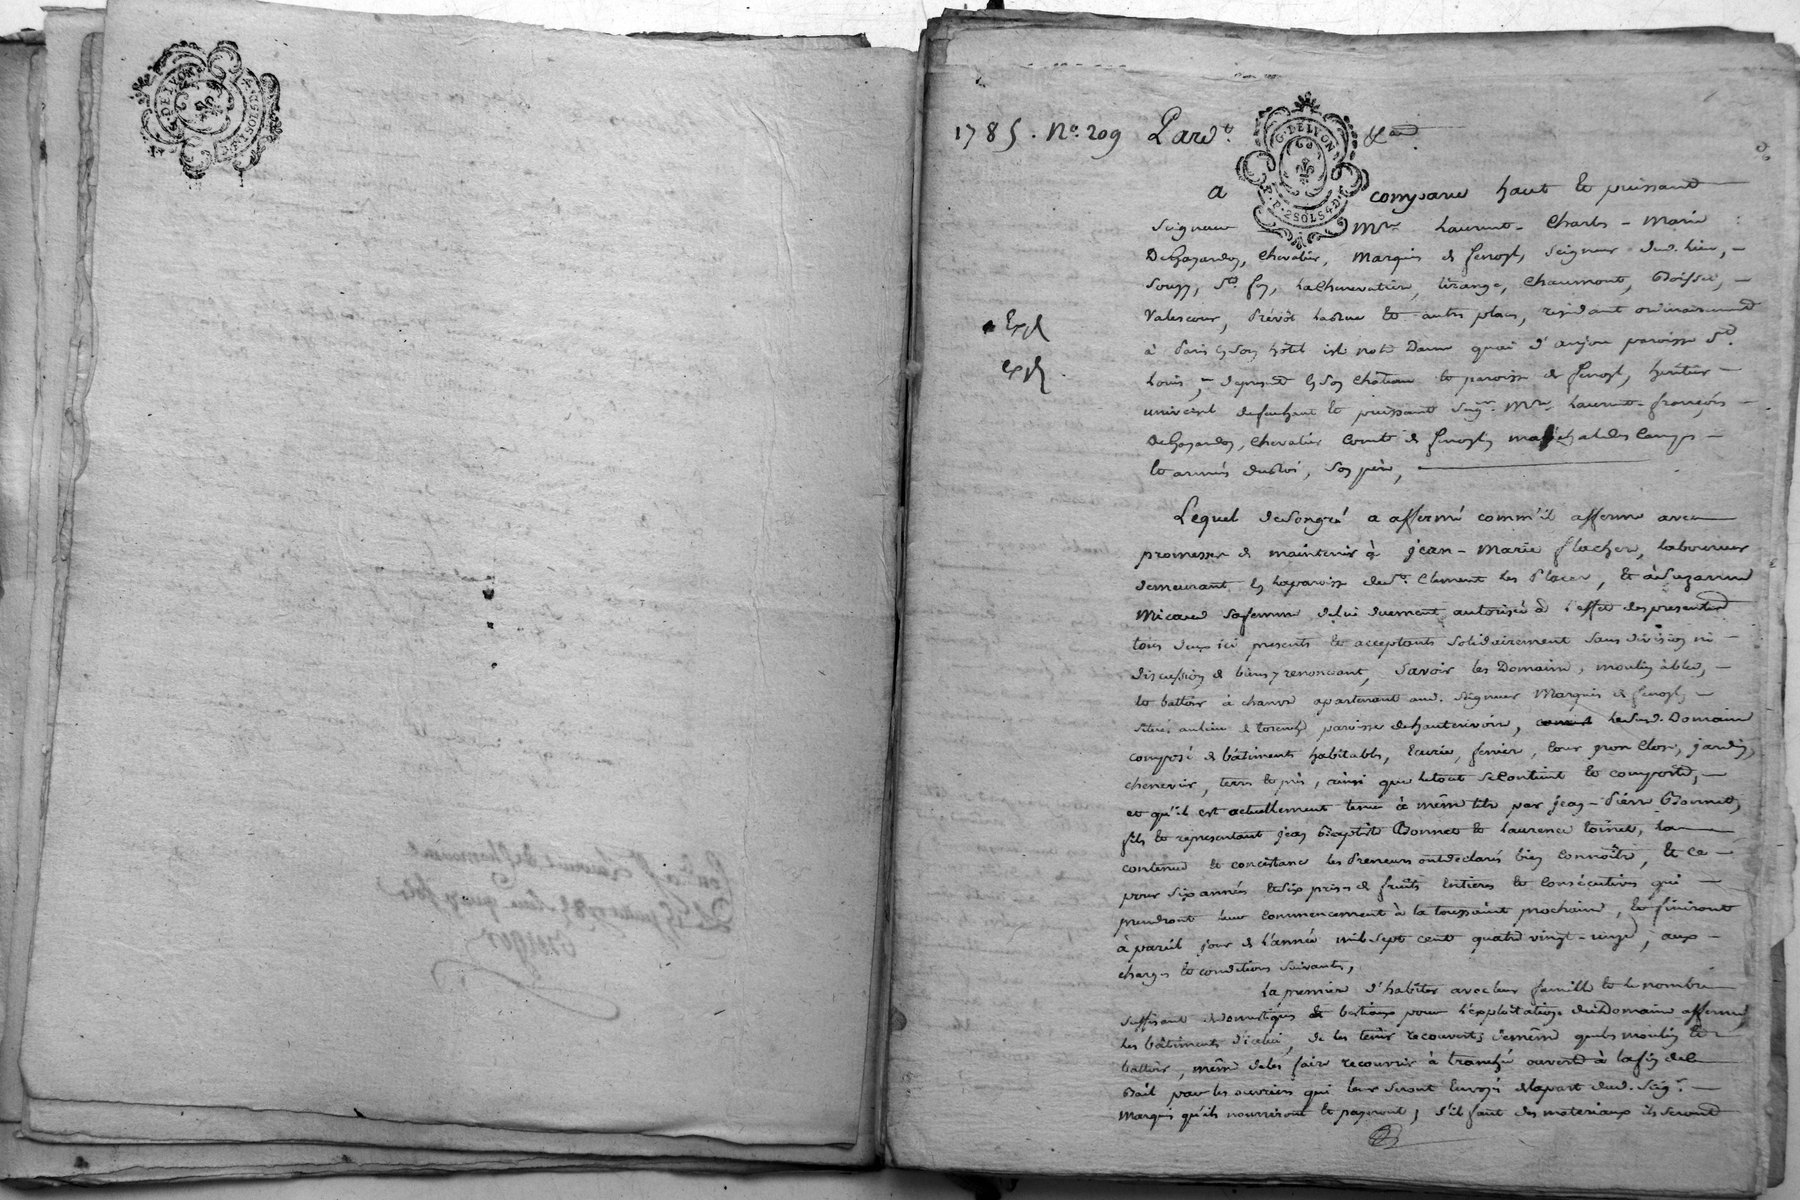 G. DE LYON
1785. No. 209 Pard.t &a.
G. DE LYON
P.P. 2 SOLS 4 D.
a comparu haut et puissant
Seigneur Mre Laurent-Charles-Marie
DeGayardon, Chevalier, Marquis de fenoyl, Seigneur dud. lieu,
Souzy, Ste foy, Chaumont, Boissé,
Valescour, et autres places, residant ordinairement
à Paris en son hôtel isle notre Dame quai d'anjou paroisse St.
Louis, de present en son Château et paroisse de fenoyl, heritier
universel de feu haut et puissant Seigr. Mre Laurent-françois
DeGayardon, Chevalier Comte de fenoyl, maréchal des Camps
et armées du Roi, son père,
Expé
expé
Lequel de son gré a affermé comm'il afferme avec
promesse de maintenir à jean-Marie flacher, laboureur
demeurant en la paroisse de St. Clement les Places, et à Suzanne
Micard sa femme de lui duement autorisée à l'effet des presentes
tous deux ici presents et acceptants solidairement sans division ni
discussion de biens y renonceant, Savoir les Domaine, moulin à bled,
et battoir à chanvre apartenant aud. Seigneur Marquis de fenoyl
situés au lieu de paroisse de hauterivoire, led. Domaine
composé de bâtiments habitables, Ecurie, fenier, Cour, jardin,
chenevier, terres et prés, ainsi que le tout se Contient et comporte,
et qu'il est actuellement tenu à même titre par jean-Pierre Bonnet,
fils et representant jean Baptiste Bonnet et Laurence toinet, la
contenue et consistance les Preneurs ont declarés bien connoître, Et ce
pour six années et six prises de fruits Entieres et Consécutives qui
prendront leur commencement à la toussaint prochaine, et finiront
à pareil jour de l'année mil sept cent quatre vingt-onze, aux
charges et conditions suivantes,
La premiere d'habiter avec leur famille et le nombre
suffisant de domestiques et bestiaux pour l'exploitation du Domaine affermé,
les bâtiments d'icelui, de les tenir recouverts de même que les moulin et
battoir, même de les faire recouvrir à tranché ouverte à la fin del
Bail par les ouvriers qui leur seront Envoyés de la part dud. Seigr.
Marquis qu'ils nourriront et payeront, s'il faut des materiaux ils seront